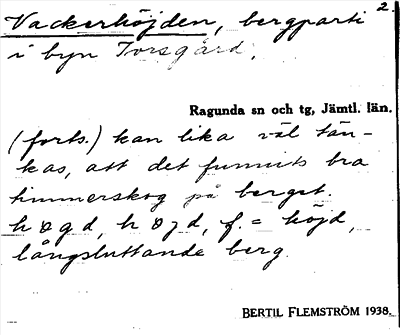 Vackerhöjden, bergparti 2
i byn Torsgård.
Ragunda sn och tg, Jämtl. län.
(forts.) kan lika väl tän-
kas, att det funnits bra
timmerskog på berget.
høgd, højd, f. = höjd,
långsluttande berg.
BERTIL FLEMSTRÖM 1938.